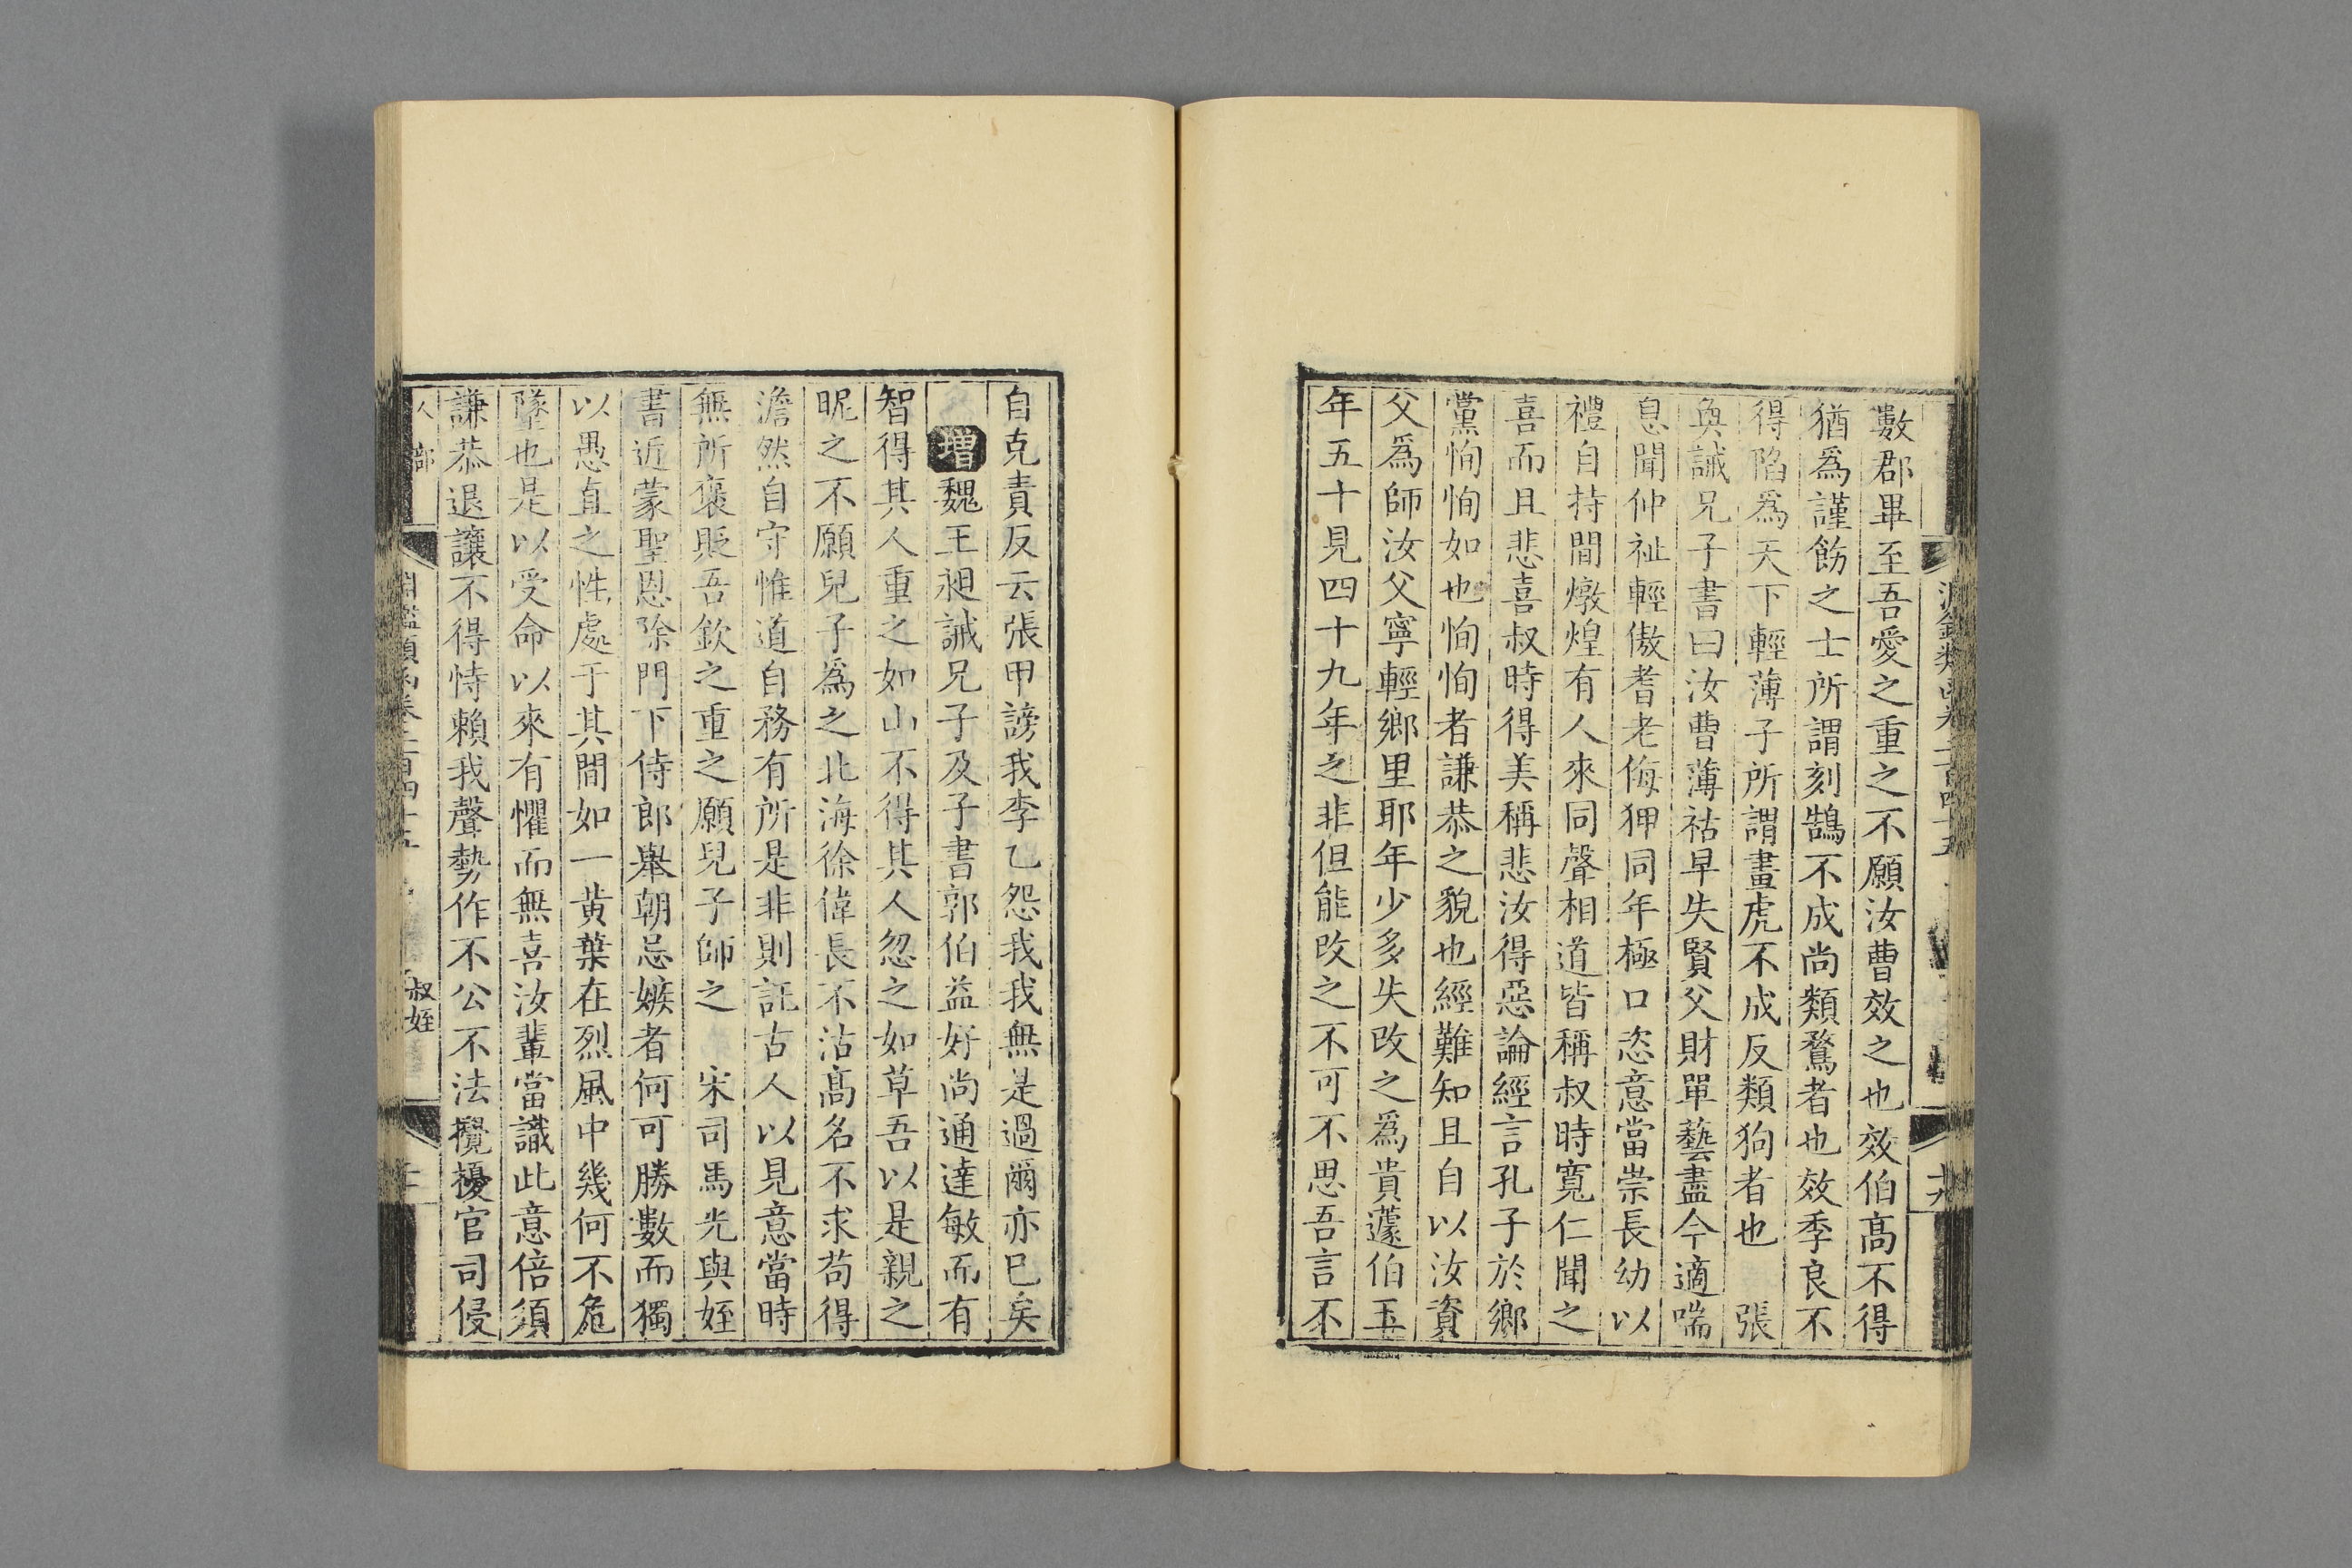 數郡畢至吾愛之重之不願汝曹效之也效伯高不得
猶爲謹飭之士所謂刻鵠不成尚類鶩者也效季良不
得陷爲天下輕薄子所謂畫虎不成反類狗者也　張
奐誡兄子書曰汝曹薄祜早失賢父財單藝盡今適喘
息聞仲祉輕傲耆老侮狎同年極口恣意當崇長幼以
禮自持聞燉煌有人來同聲相道皆稱叔時寬仁聞之
喜而且悲喜叔時得美稱悲汝得惡論經言孔子於鄉
黨恂恂如也恂恂者謙恭之貌也經難知且自以汝資
父爲師汝父寧輕鄉里耶年少多失改之爲貴蘧伯玉
年五十見四十九年之非但能改之不可不思吾言不
自克責反云張甲謗我李乙怨我我無是過爾亦巳矣
增魏王昶誡兄子及子書郭伯益好尚通達敏而有
智得其人重之如山不得其人忽之如草吾以是親之
昵之不願兒子爲之北海徐偉長不沽髙名不求苟得
澹然自守惟道自務有所是非則託古人以見意當時
無所褒貶吾欽之重之願兒子師之　宋司馬光與姪
書近蒙聖恩除門下侍郎舉朝忌嫉者何可勝數而獨
以愚直之性處于其間如一黄葉在烈風中幾何不危
墜也是以受命以來有懼而無喜汝輩當識此意倍須
謙恭退讓不得恃賴我聲勢作不公不法攪擾官司侵
人部　淵鑑類函卷二百四十五　叔姪